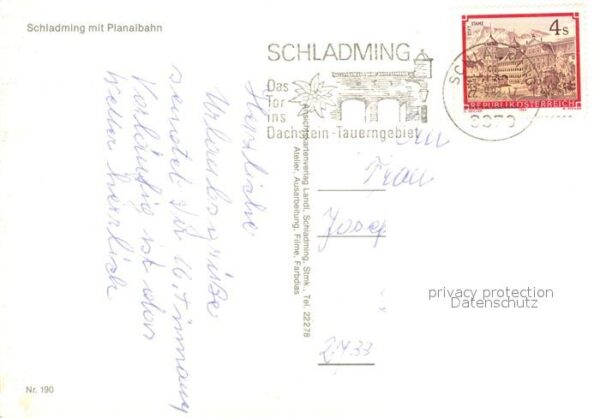 Schladming mit Planaibahn
SCHLADMING
Das
Tor
ins
Dachstein-Tauerngebiet
4 S
STIFT STAMS
REPUBLIK ÖSTERREICH
8970
Herzliche
Urlaubsgrüße
sendet Dir
Vorläufig ist das
Wetter herrlich
Ansichtskartenverlag Landl, Schladming, Stmk., Tel. 22278
Atelier, Ausarbeitung, Filme, Farbdias
An
Frau
Josef
2733
privacy protection
Datenschutz
Nr. 190